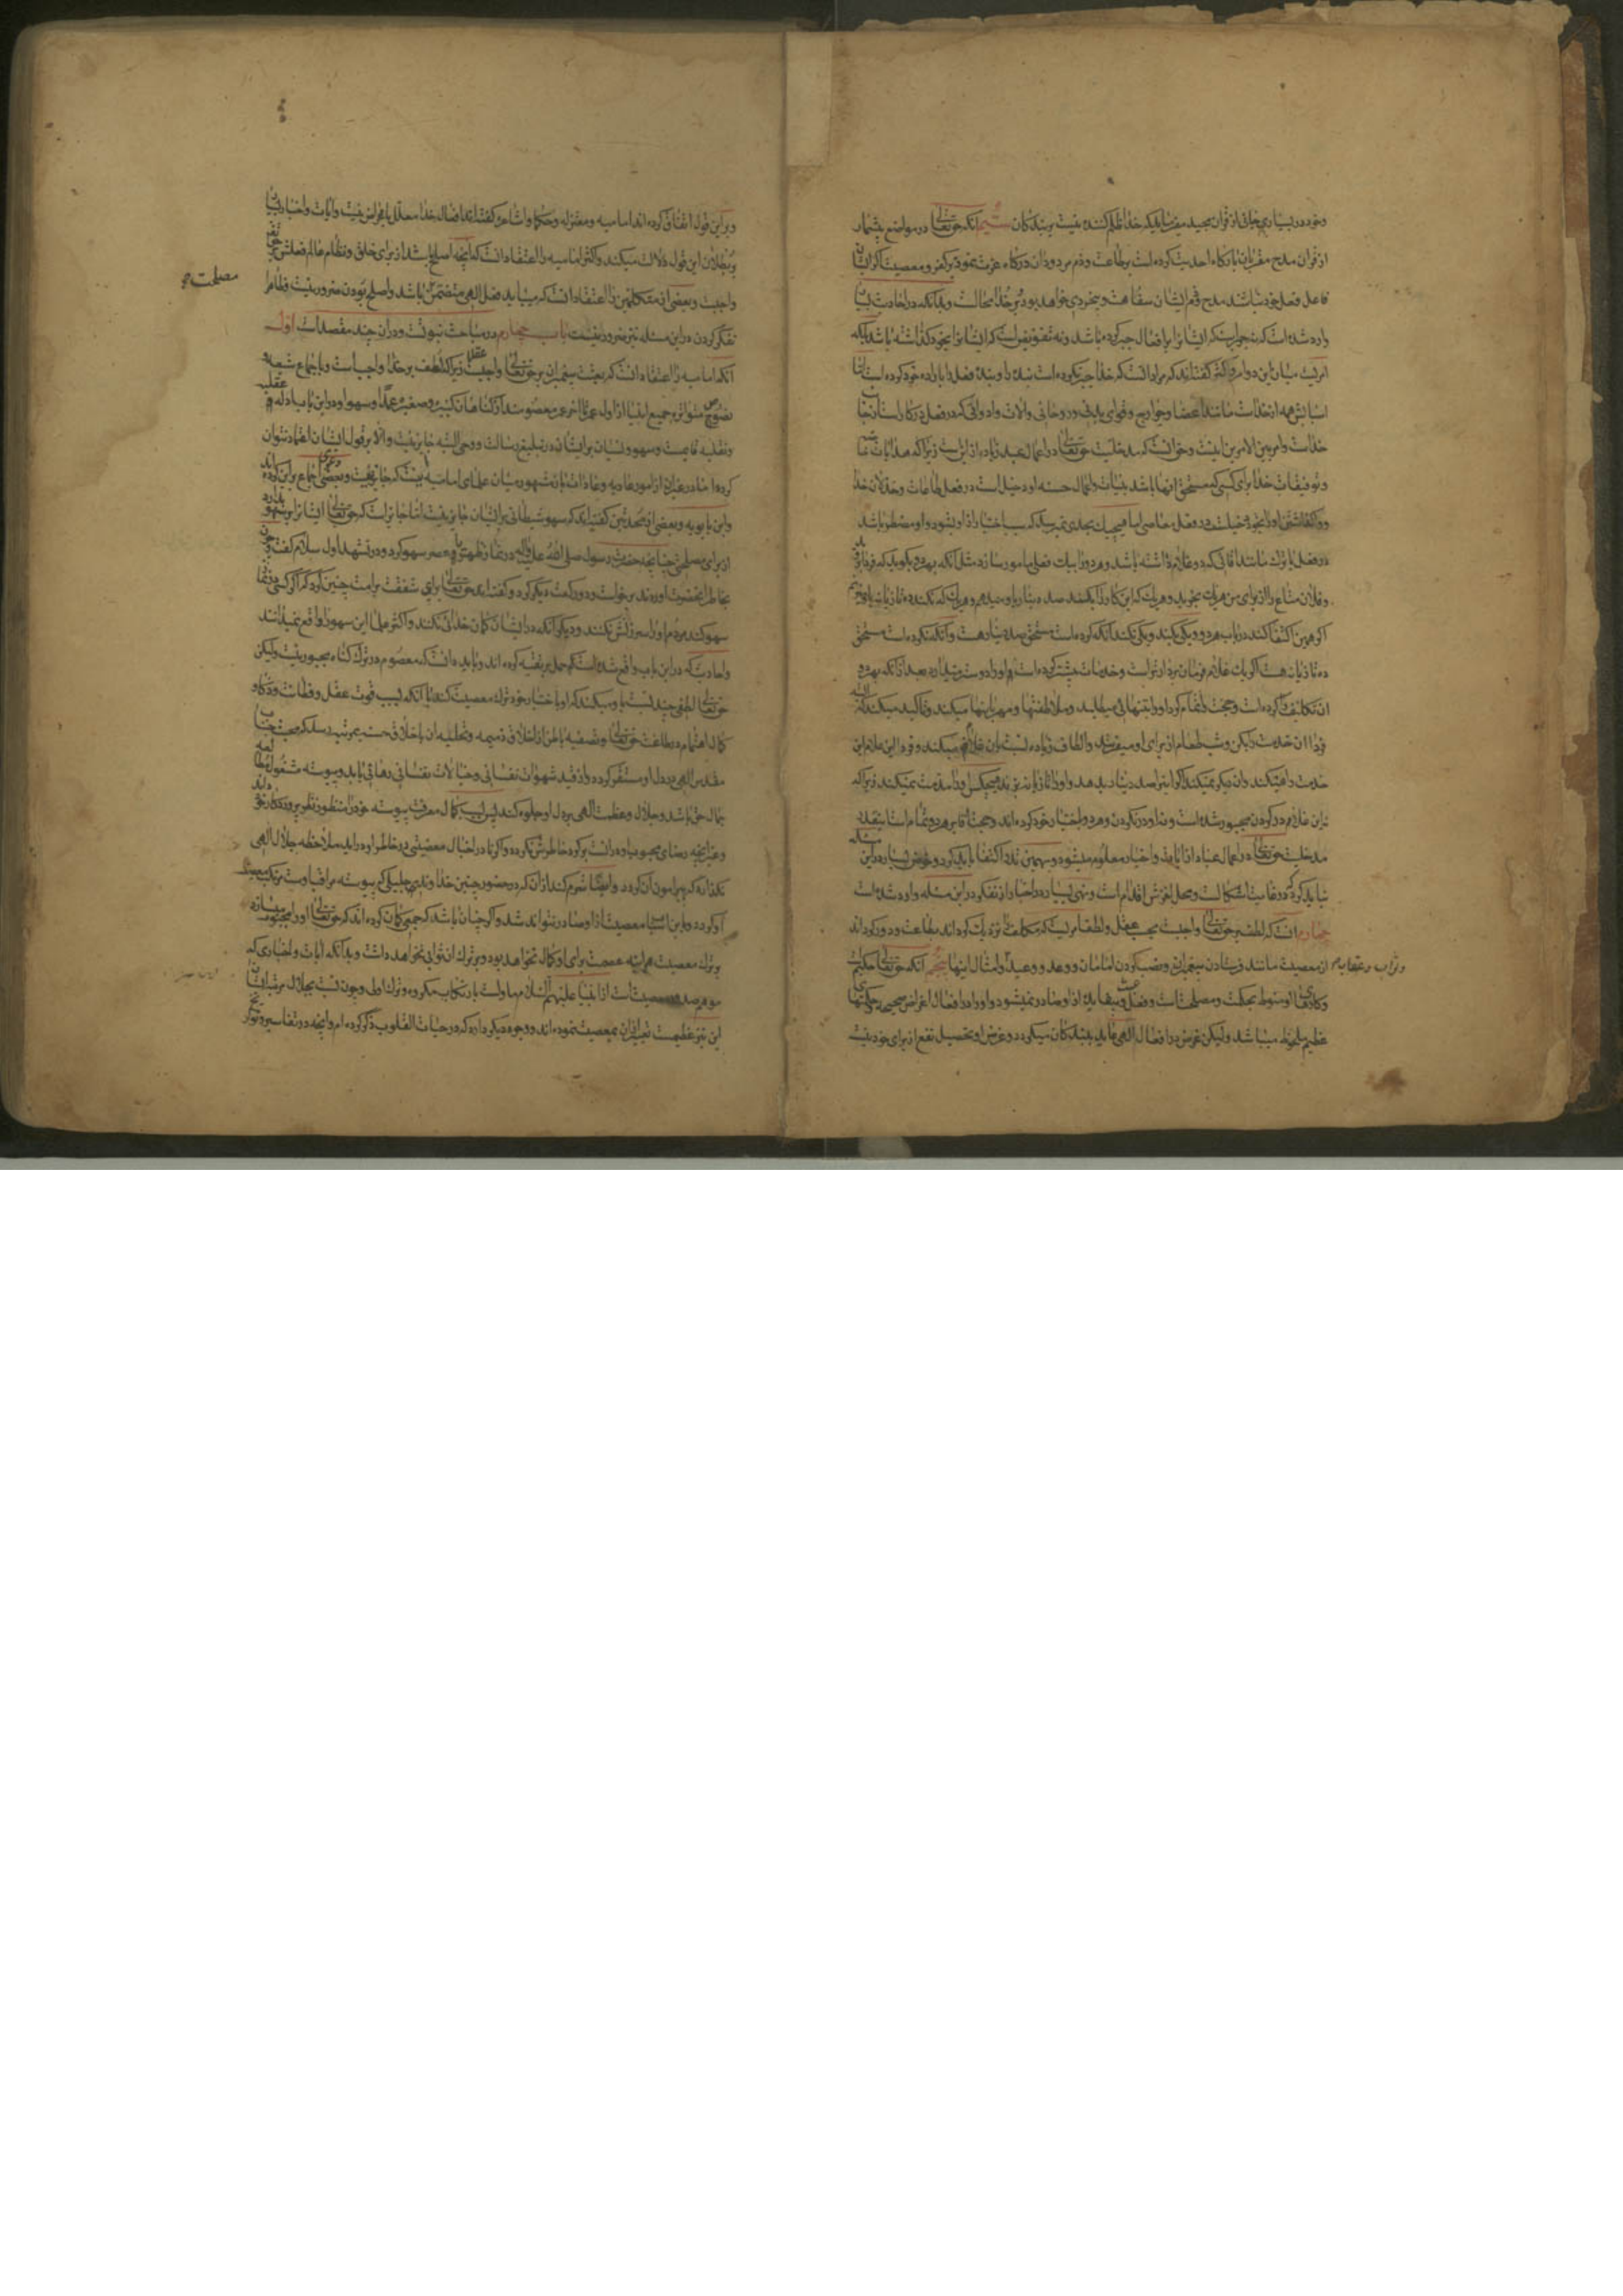 وخود در بسیاری جای از قران مجید میفرماید که خدا ظلم کننده نیست بر بندگان سیم آنکه حق تعالی در مواضع بیشمار
از قران مدح مقربان بارگاه احدیت کرده است بر طاعت و ذم مردودان درگاه عزت نموده بر کفر و معصیت اگر ایشان
فاعل فعل خود نباشند مدح و ذم ایشان سفاهت و بیخردی خواهد بود و بر خدا محالست و بدانکه در احادیث بسیار
وارد شده است که نه جبر است که ایشانرا بر افعال جبر کرده باشد و نه تفویض است که ایشانرا بخود گذاشته باشد بلکه
امریست میان این دو امر و اکثر گفته‌اند که مراد آنست که خدا جبر نکرده است بنده را و بنده فعل را باراده خود کرده است اما
اسبابش همه از خداست مانند اعضا و جوارح و قوای بدنی و روحانی و آلات و ادواتی که در فعل در کار است از جانب
خداست و امر بین الامرین اینست و حق آنست که مدخلیت حق تعالی در اعمال عبد زیاده از این است زیرا که هدایات
و توفیقات خدا برای کسی که مستحق آنها باشد بنیات و اعمال حسنه او دخیل است در فعل طاعات و خذلان خدا
در فعل یا ترک مانند آقائی که دو غلام داشته باشد و هر دو را بیک فعلی مامور سازد مثل آنکه بهر دو بگوید که فردا برو
و فلان متاع را از برای من هر یک بخرید و هر یک که این کار را بکنند صد دینار باو میدهم و هر یک که نکند ده تازیانه باو میزنم
اگر بهمین اکتفا کند در باب هر دو و یکی بکند و یکی نکند آنکه کرده است مستحق صد دینار هست و آنکه نکرده است مستحق
ده تازیانه هست اگر یک غلام فرمان بردارتر است و خدمات بیشتر کرده است و او را دوست میدارد بعد از آنکه بهر دو
آن تکلیف کرده است و حجت را تمام کرد او را بتنهائی میطلبد و ملاطفتها و مهربانیها میکند و تاکید میکند که البته
فردا آن خدمت را بکن و شب طعام از برای او میفرستد و الطاف زیاده نسبت بان غلام میکند و فردا این غلام این
خدمت را میکند و آن دیگر نمیکند اگر این را صد دینار بدهد و او را ده تازیانه بزند هیچکس او را مذمت نمیکند زیرا که
نه این غلام در کردن مجبور شده است و نه او در نکردن و هر دو باختیار خود کرده‌اند و حجت آقا بر هر دو تمام است اینقدر
مدخلیت حق تعالی در اعمال عباد از آیات و اخبار معلوم میشود و بهمین قدر اکتفا باید کرد و خوض بسیار در این مسئله
نباید کرد که در غایت اشکالست و محل لغزش اقدام است و نهی بسیار در اخبار از تفکر در این مسئله وارد شده است
چهارم آنست که لطف بر حق تعالی واجبست بحسب عقل و لطف امریست که مکلف را نزدیک گرداند بطاعت و دور گرداند
از معصیت مانند فرستادن پیغمبران و نصب کردن امامان و وعد و وعید و امثال اینها پنجم آنکه حق تعالی حکیمست
وثواب وعقاب
و کارهای او منوط بحکمت و مصلحت است و فعل عبث و بیفایده از او صادر نمیشود و او را در افعال اغراض صحیحه و حکمتهای
عظیم ملحوظ میباشد ولیکن غرض در افعال الهی عاید بندگان میگردد و غرض او تحصیل نفع از برای خود نیست
و بر این قول اتفاق کرده‌اند امامیه و معتزله و حکما و اشاعره گفته‌اند افعال خدا معلل باغراض نیست و آیات و اخبار بسیار
بر بطلان این قول دلالت میکند و اکثر امامیه را اعتقاد آنست که آنچه اصلح باشد از برای خلق و نظام عالم فعلش بر حق تعالی
واجبست و بعضی از متکلمین را اعتقاد آنست که میباید فعل الهی متضمن باشد و اصلح بودن ضرور نیست
مصلحت
تفکر کردن در این مسئله نیز ضرور نیست باب چهارم در مباحث نبوتست و در آن چند مقصد است اول
آنکه امامیه را اعتقاد آنست که بعثت پیغمبران بر حق تعالی واجبست عقلا زیرا که لطف بر خدا واجب است و باجماع شیعه
و نصوص متواتره جمیع انبیا از اول عمر تا آخر عمر معصومند از گناهان کبیره و صغیره عمدا و سهوا و در این باب ادله عقلیه
و نقلیه قایمست و سهو و نسیان بر ایشان در تبلیغ رسالت و وحی البته جایز نیست و الا بر قول ایشان اعتماد نتوان
کرد اما در غیر آن از امور عادیه و عبادات باز مشهور میان علمای امامیه آنست که جایز نیست و بعضی دعوی اجماع بر این کرده‌اند
و ابن بابویه و بعضی از محدثین گفته‌اند که سهو شیطانی بر ایشان جایز نیست اما جایز است که حق تعالی ایشانرا سهو بدارد
از برای مصلحتی چنانچه حضرت رسول صلی الله علیه واله در نماز ظهر یا عصر سهو کرد و در تشهد اول سلام گفت و چون
بخاطر آنحضرت آوردند برخواست و دو رکعت دیگر کرد و گفته‌اند حق تعالی برای شفقت بر امت چنین کرد که اگر کسی در نماز
سهو کند مردم او را سرزنش نکنند و دیگر آنکه در ایشان گمان خدائی نکنند و اکثر علما این سهو را واقع نمیدانند
و احادیث که در این باب واقع شده است حمل بر تقیه کرده‌اند و باید دانست که معصوم در ترک گناه مجبور نیست ولیکن
حق تعالی لطفی چند نسبت باو میکند که او باختیار خود ترک معصیت کند با آنکه بسبب قوت عقل و فطانت و ذکاء
کمال اهتمام در طاعت حق تعالی و تصفیه باطن از اخلاق ذمیمه و تحلیه آن باخلاق حسنه بمرتبه رسد که محبت جناب
مقدس الهی در دل او مستقر گردد و از قید شهوات نفسانی و خیالات نفسانی رهائی یابد و پیوسته مشغول مطالعه
جمال حق باشد و جلال و عظمت الهی بر دل او جلوه کند پس بسبب کمال معرفت پیوسته خود را منظور نظر پروردگار خود داند
و غیر آنچه رضای محبوب او در آنست بر گرد خاطرش نگردد و اگر نادرا خیال معصیتی در خاطر او درآید ملاحظه جلال الهی
نگذارد که پیرامون آن گردد و ایضا شرم کند از آن که در حضور چنین خداوند جلیلی که پیوسته مراقب اوست مرتکب معصیت
او گردد و باین اسباب معصیت از او صادر نتواند شد و اگر چنان باشد که جمعی گمان کرده‌اند که حق تعالی او را مجبور میسازد
بر ترک معصیت هر آینه عصمت برای او کمال نخواهد بود و بر ترک آن ثوابی نخواهد داشت و بدانکه آیات و اخباری که
موهم صدور معصیت است از انبیا علیهم السلام ماولست بارتکاب مکروه و ترک اولی و چون نسبت بجلال مرتبه ایشان
این نیز عظیمست تعبیر از آن بمعصیت نموده‌اند و وجوه دیگر دارد که در حیات القلوب ذکر کرده‌ام و آنچه در تفاسیر و تواریخ